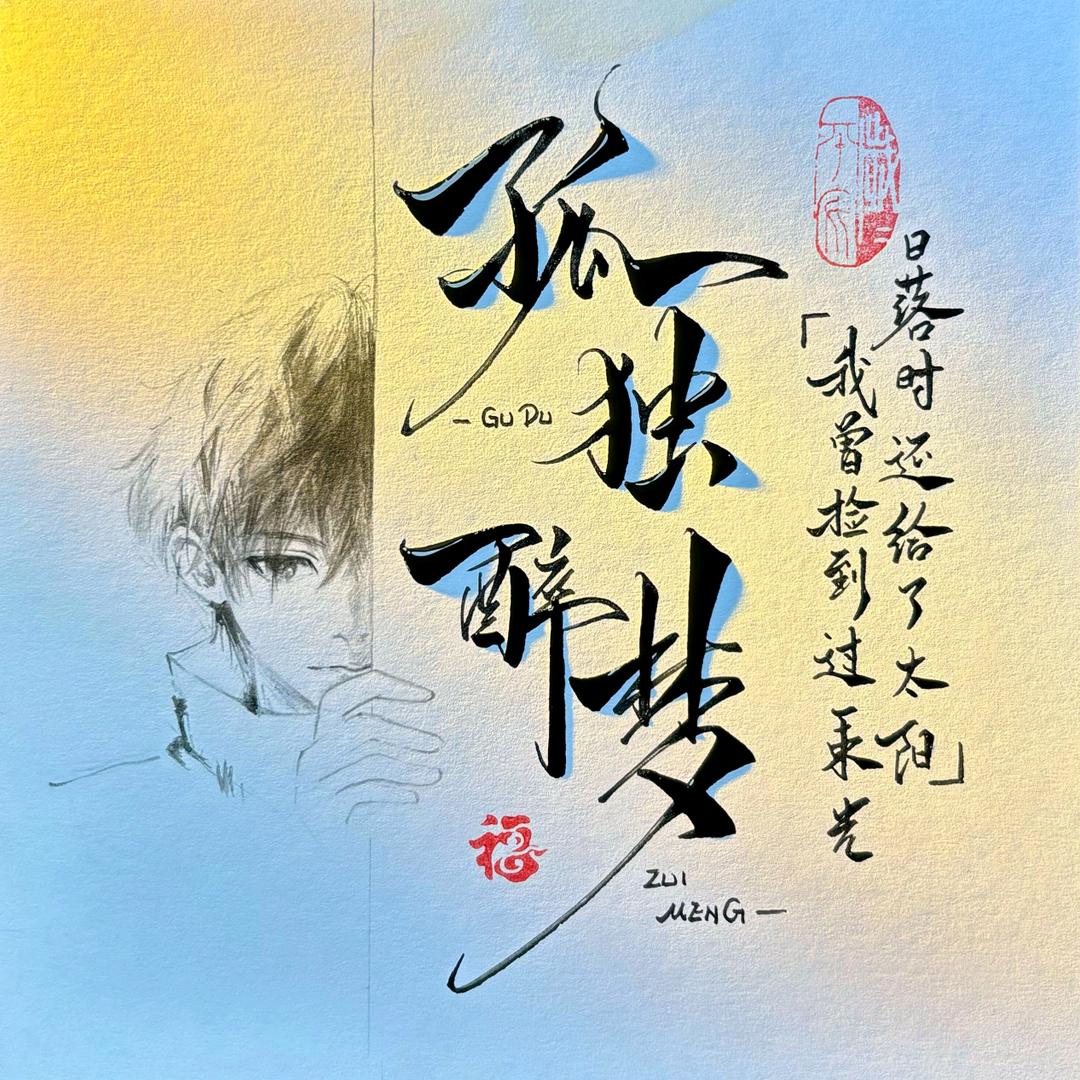 孤独
GU DU
醉梦
ZUI
MENG
「我曾捡到过束光
日落时还给了太阳」
福